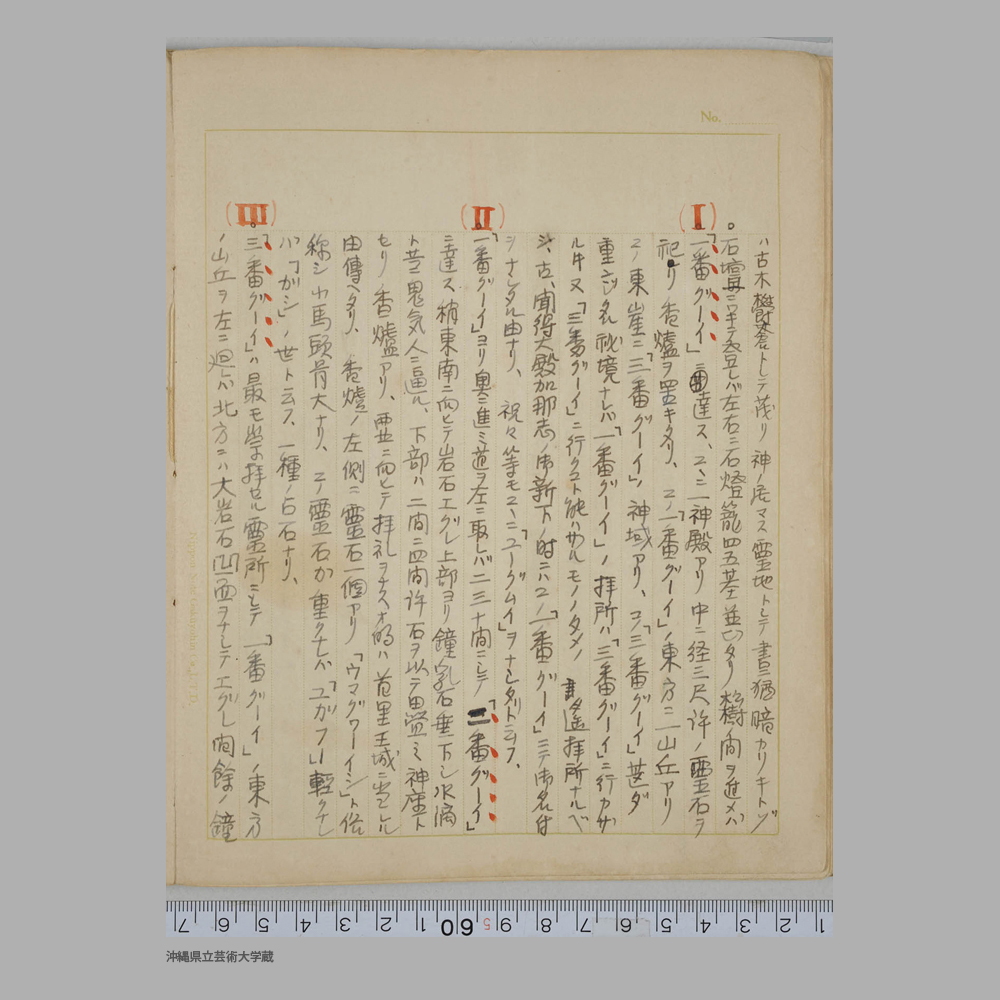 No.
ハ古木欝蒼トシテ茂リ神ノ居マス霊地トシテ晝猶暗カリキトゾ
石壇ニワキテ登レバ左右ニ石燈籠四五基並ビタリ松樹ノ間ヲ進メバ
(I)
「一番グーイ」ニ達ス、コヽニ一神殿アリ中ニ径三尺許ノ霊石ヲ
祀リ香爐ヲ置キタリ、コノ「一番グーイ」ノ東方ニ一山丘アリ
コノ東崖ニ「三番グーイ」ノ神域アリ、コノ「三番グーイ」甚ダ
重ンジタル秘境ナレバ「一番グーイ」ノ拝所ハ「三番グーイ」ニ行カザ
ル者又「三番グーイ」ニ行クコト能ハザルモノノタメノ遙拝所ナルベ
シ、古、聞得大殿加那志ノ御新下ノ時ニハコノ「一番グーイ」ニテ御名付
シナシタル由ナリ、祝々等モコヽニ「ユーグムイ」ヲナシタリト云フ、
(II)
「一番グーイ」ヨリ奥ニ進ミ道ヲ左ニ取レバ二三十間ニシテ「二番グーイ」
ニ達ス稍東南ニ向ヒテ岩石エグレ上部ヨリ鐘乳石垂下シ水滴
ト共ニ鬼気人ニ逼ル、下部ハ二間ニ四間許石ヲ以テ由営ミ神座ト
セリ香爐アリ、西北ニ向ヒテ拝礼ヲナス的ハ首里王城ニ当レル
由傳ヘタリ、香爐ノ左側ニ霊石一個アリ「ウマグワーイシ」ト俗
称シ小馬頭骨大ナリ、コノ霊石カ重クナレバ「ユガフー」軽クナレ
バ「ガシ」ノ世ト云ス、一種ノ占石ナリ、
(III)
「三番グーイ」ハ最モ崇拝セル霊所ニシテ「一番グーイ」ノ東方
ノ山丘ヲ左ニ廻レバ北方ニハ大岩石凹面ヲナシテエグレ間餘ノ鐘
7 6 5 4 3 2 1 60 5 9 8 7 6 5 4 3 2 1
沖縄県立芸術大学蔵